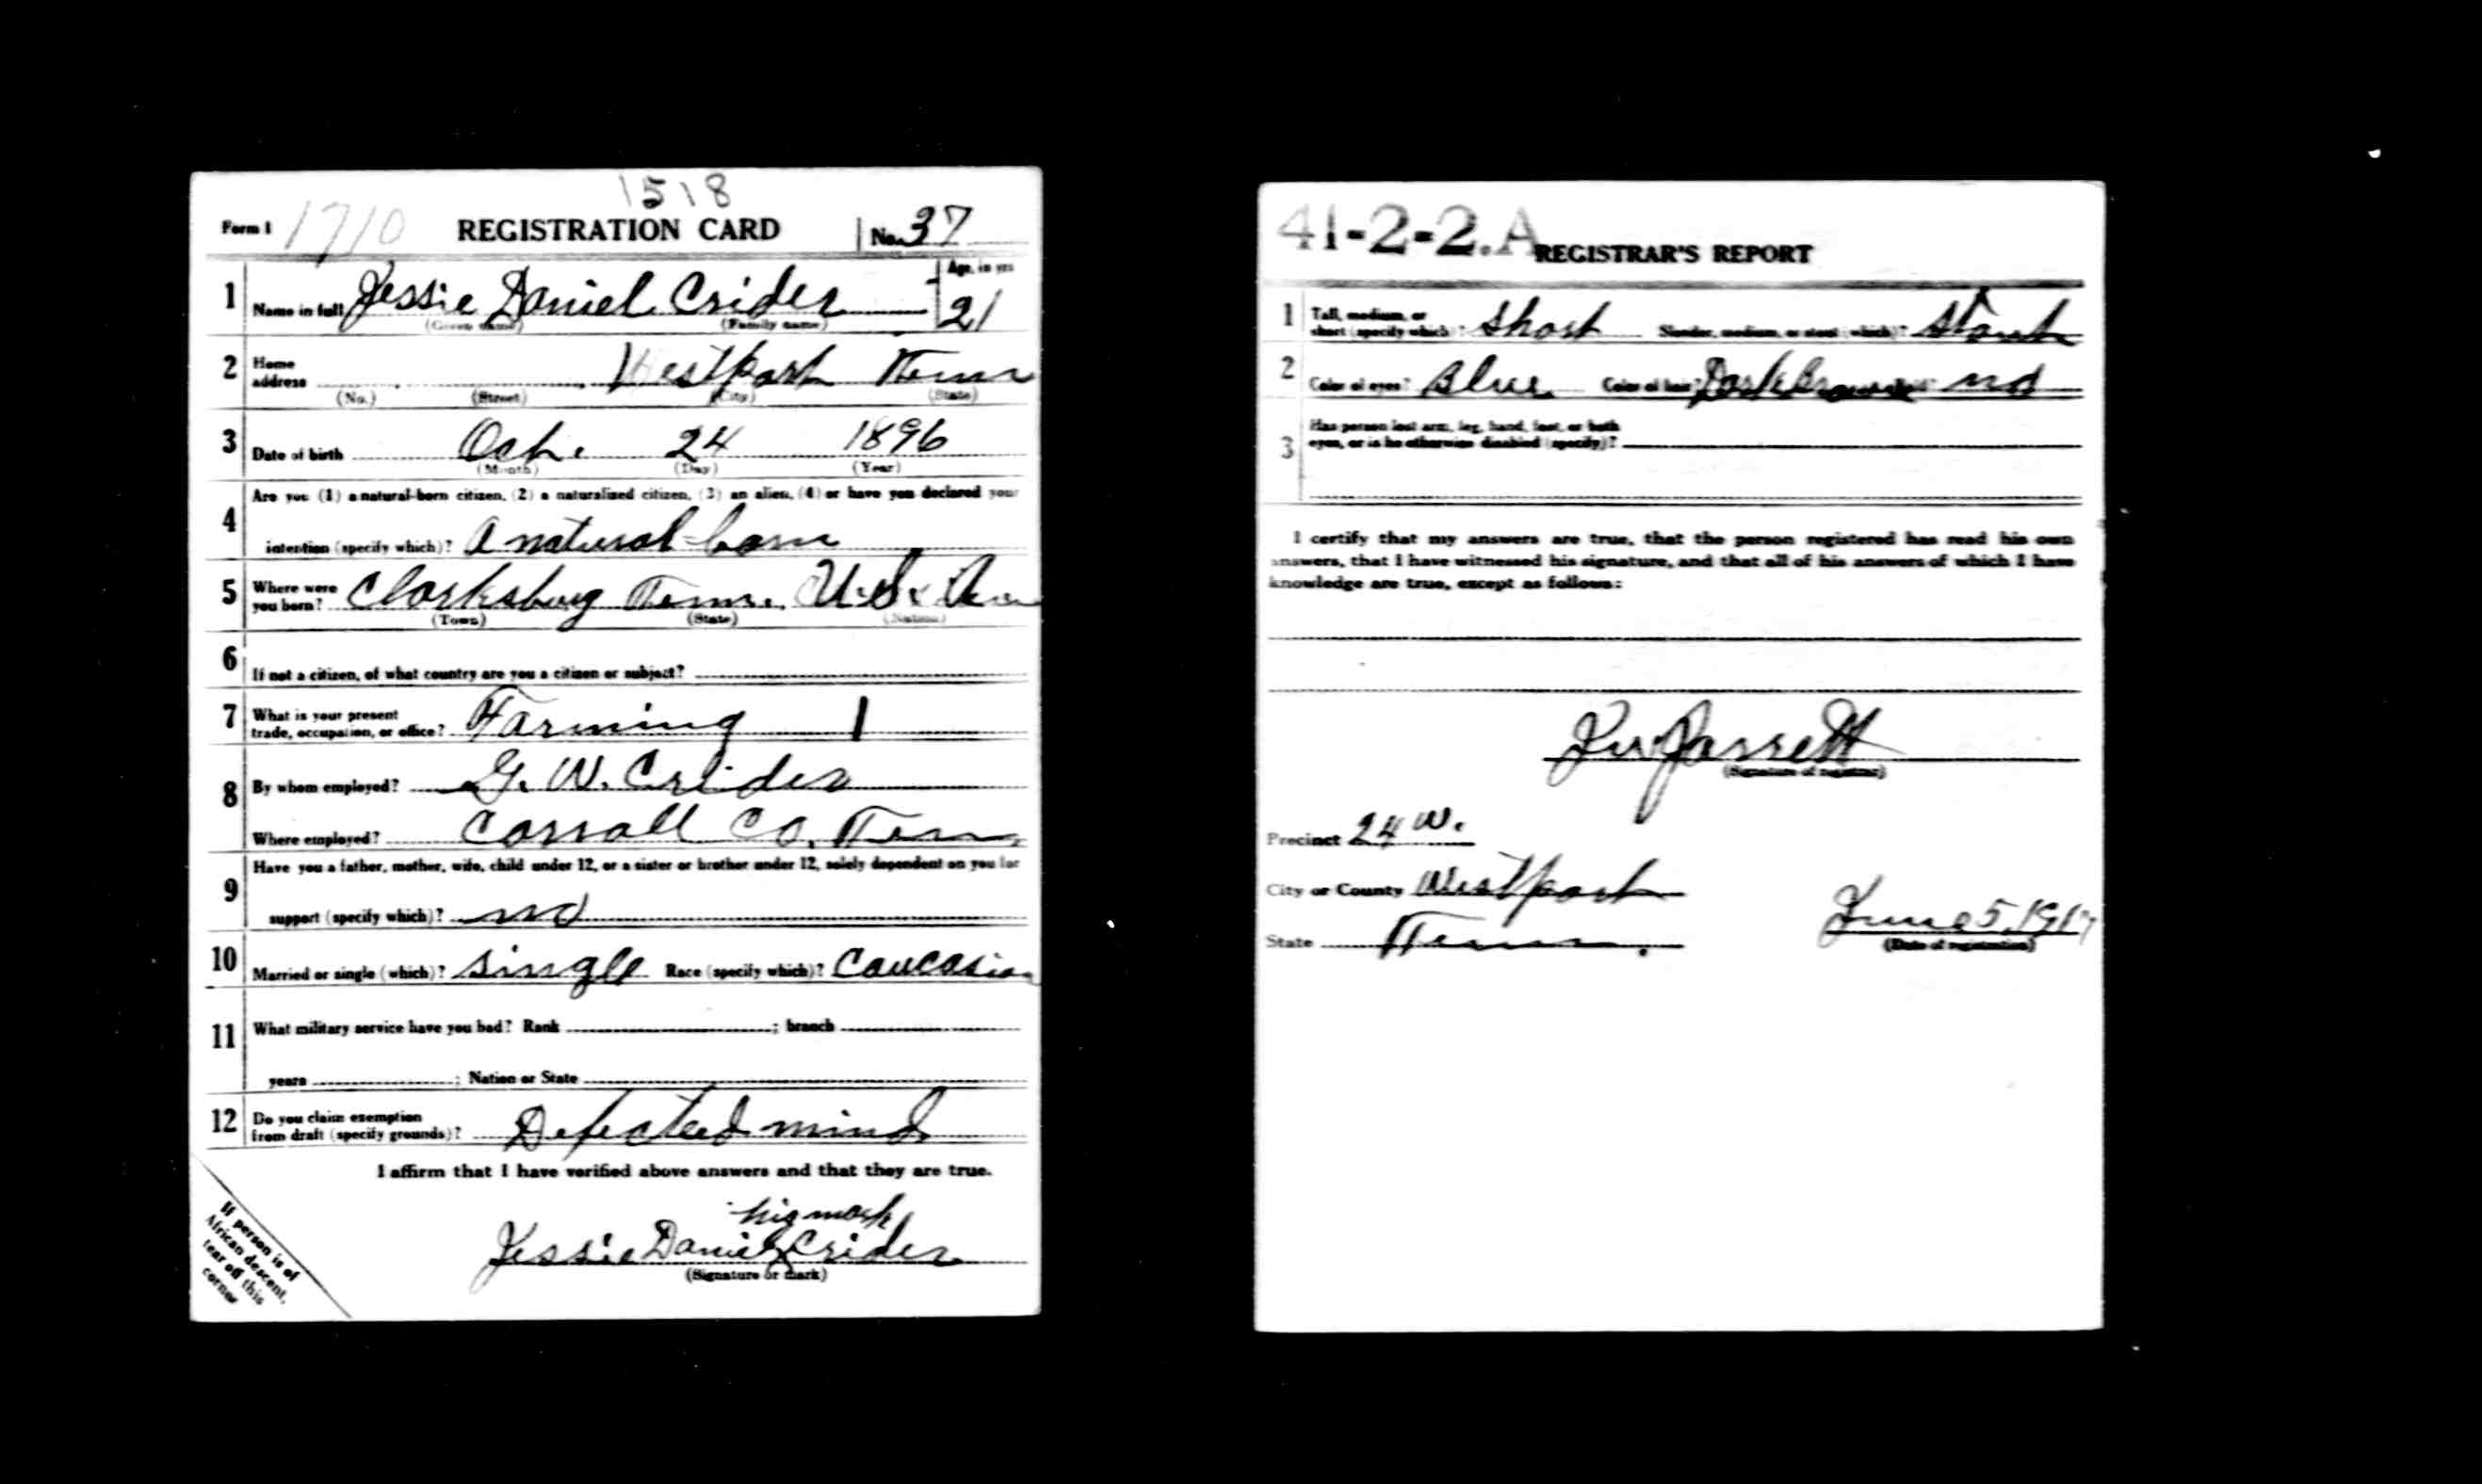 1518
Form 1 1710 REGISTRATION CARD No. 37
1 Name in full Jessie Daniel Crider Age, in yrs 21
(Given name) (Family name)
2 Home address Westport Tenn
(No.) (Street) (City) (State)
3 Date of birth Oct. 24 1896
(Month) (Day) (Year)
4 Are you (1) a natural-born citizen, (2) a naturalized citizen, (3) an alien, (4) or have you declared your
intention (specify which)? A natural-born
5 Where were you born? Clarksburg Tenn. U.S.A
(Town) (State) (Nation)
6 If not a citizen, of what country are you a citizen or subject?
7 What is your present trade, occupation, or office? Farming 1
8 By whom employed? G. W. Crider
Where employed? Carroll Co. Tenn
9 Have you a father, mother, wife, child under 12, or a sister or brother under 12, solely dependent on you for
support (specify which)? no
10 Married or single (which)? Single Race (specify which)? Caucasian
11 What military service have you had? Rank ; branch
years ; Nation or State
12 Do you claim exemption from draft (specify grounds)? Defected mind
I affirm that I have verified above answers and that they are true.
his mark
Jessie Daniel X Crider
(Signature or mark)
If person is of
African descent,
tear off this
corner
41-2-2.A REGISTRAR'S REPORT
1 Tall, medium, or short (specify which)? Short Slender, medium, or stout (which)? Stout
2 Color of eyes? Blue Color of hair? Dark Brown Bald? no
3 Has person lost arm, leg, hand, foot, or both eyes, or is he otherwise disabled (specify)?
I certify that my answers are true, that the person registered has read his own
answers, that I have witnessed his signature, and that all of his answers of which I have
knowledge are true, except as follows:
Jarrett
(Signature of registrar)
Precinct 24 W.
City or County Westport
State Tenn.
June 5, 1917
(Date of registration)